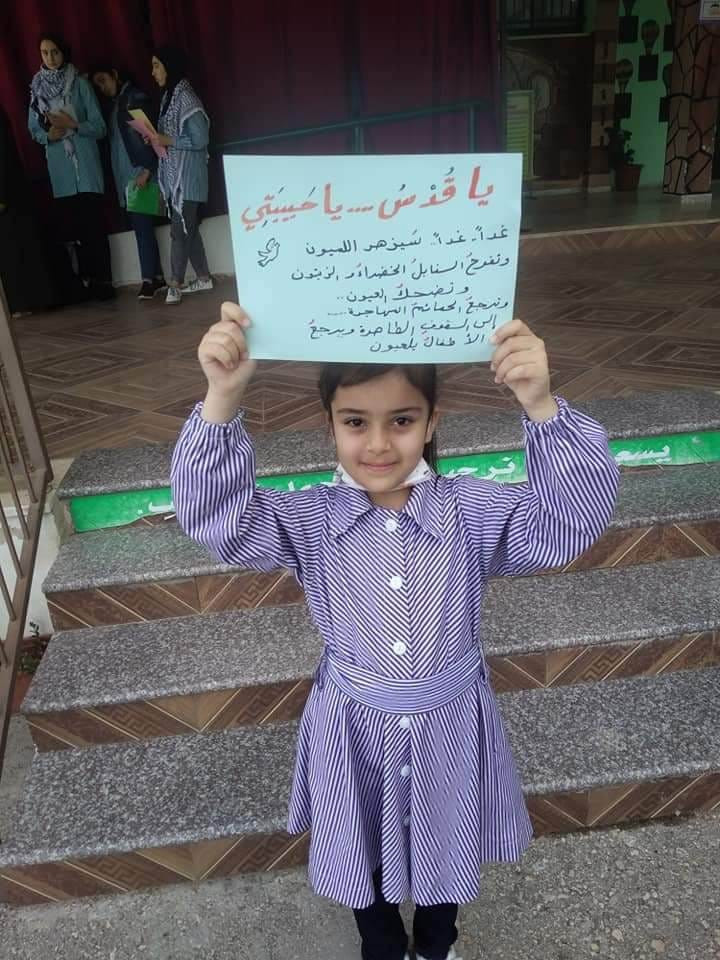 يا قُدْسُ... يا حَبيبَتِي
غداً.. غداً.. سَيزهر الليمون
وتفرحُ السنابلُ الخضراءُ و الزيتون
وتضحكُ العيون..
وترجعُ الحمائمُ المهاجرة.....
إلى السقوفِ الطاهرة ويرجعُ
الأطفالُ يلعبون